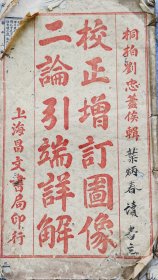 桐柏劉忠蕭侯輯
葉炳春讀
校正增訂圖像
二論引端詳解
上海昌文書局印行